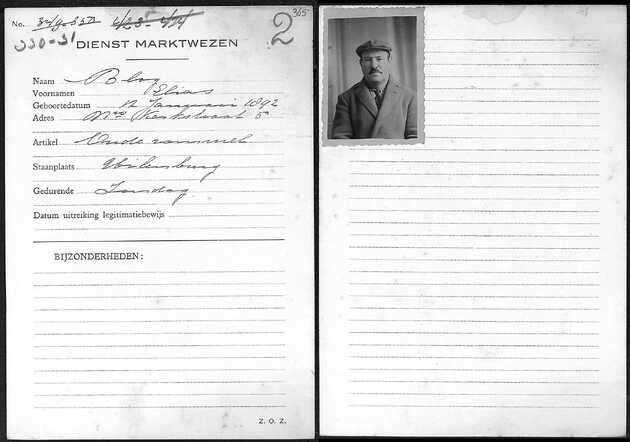 No.
2
365
DIENST MARKTWEZEN
Naam Blog
Voornamen Elias
Geboortedatum 12 Januari 1892
Adres Kerkstraat 5
Artikel Oude rommel
Staanplaats Uilenburg
Gedurende Zondag
Datum uitreiking legitimatiebewijs
BIJZONDERHEDEN:
Z. O. Z.